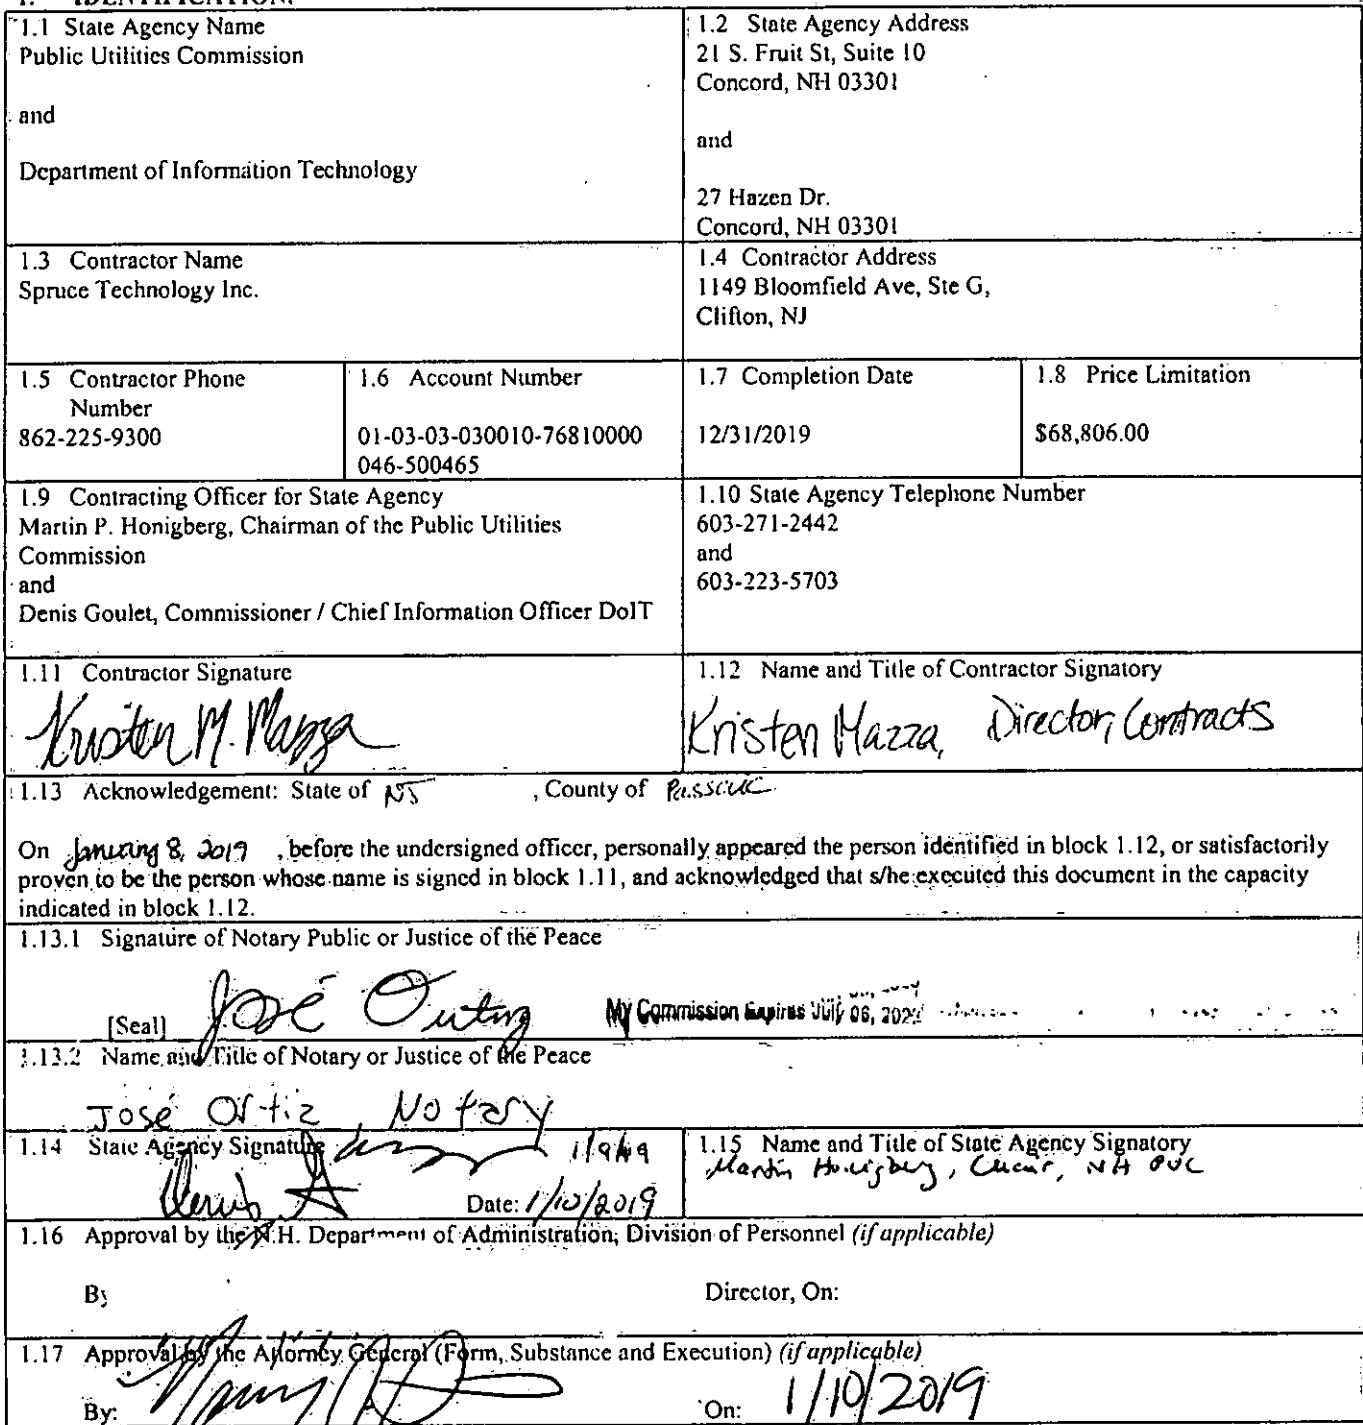 I. IDENTIFICATION.
1.1 State Agency Name
Public Utilities Commission
and
Department of Information Technology
1.2 State Agency Address
21 S. Fruit St, Suite 10
Concord, NH 03301
and
27 Hazen Dr.
Concord, NH 03301
1.3 Contractor Name
Spruce Technology Inc.
1.4 Contractor Address
1149 Bloomfield Ave, Ste G,
Clifton, NJ
1.5 Contractor Phone
Number
862-225-9300
1.6 Account Number
01-03-03-030010-76810000
046-500465
1.7 Completion Date
12/31/2019
1.8 Price Limitation
$68,806.00
1.9 Contracting Officer for State Agency
Martin P. Honigberg, Chairman of the Public Utilities
Commission
and
Denis Goulet, Commissioner / Chief Information Officer DoIT
1.10 State Agency Telephone Number
603-271-2442
and
603-223-5703
1.11 Contractor Signature
Kristen M. Mazza
1.12 Name and Title of Contractor Signatory
Kristen Mazza, Director, Contracts
1.13 Acknowledgement: State of NJ , County of Passaic
On January 8, 2019 , before the undersigned officer, personally appeared the person identified in block 1.12, or satisfactorily
proven to be the person whose name is signed in block 1.11, and acknowledged that s/he executed this document in the capacity
indicated in block 1.12.
1.13.1 Signature of Notary Public or Justice of the Peace
[Seal] José Ortiz My Commission Expires July 06, 202
1.13.2 Name and Title of Notary or Justice of the Peace
José Ortiz, Notary
1.14 State Agency Signature
1/9/19
Date: 1/10/2019
1.15 Name and Title of State Agency Signatory
Martin Honigberg, Chair, NH PUC
1.16 Approval by the N.H. Department of Administration, Division of Personnel (if applicable)
By Director, On:
1.17 Approval by the Attorney General (Form, Substance and Execution) (if applicable)
By: On: 1/10/2019